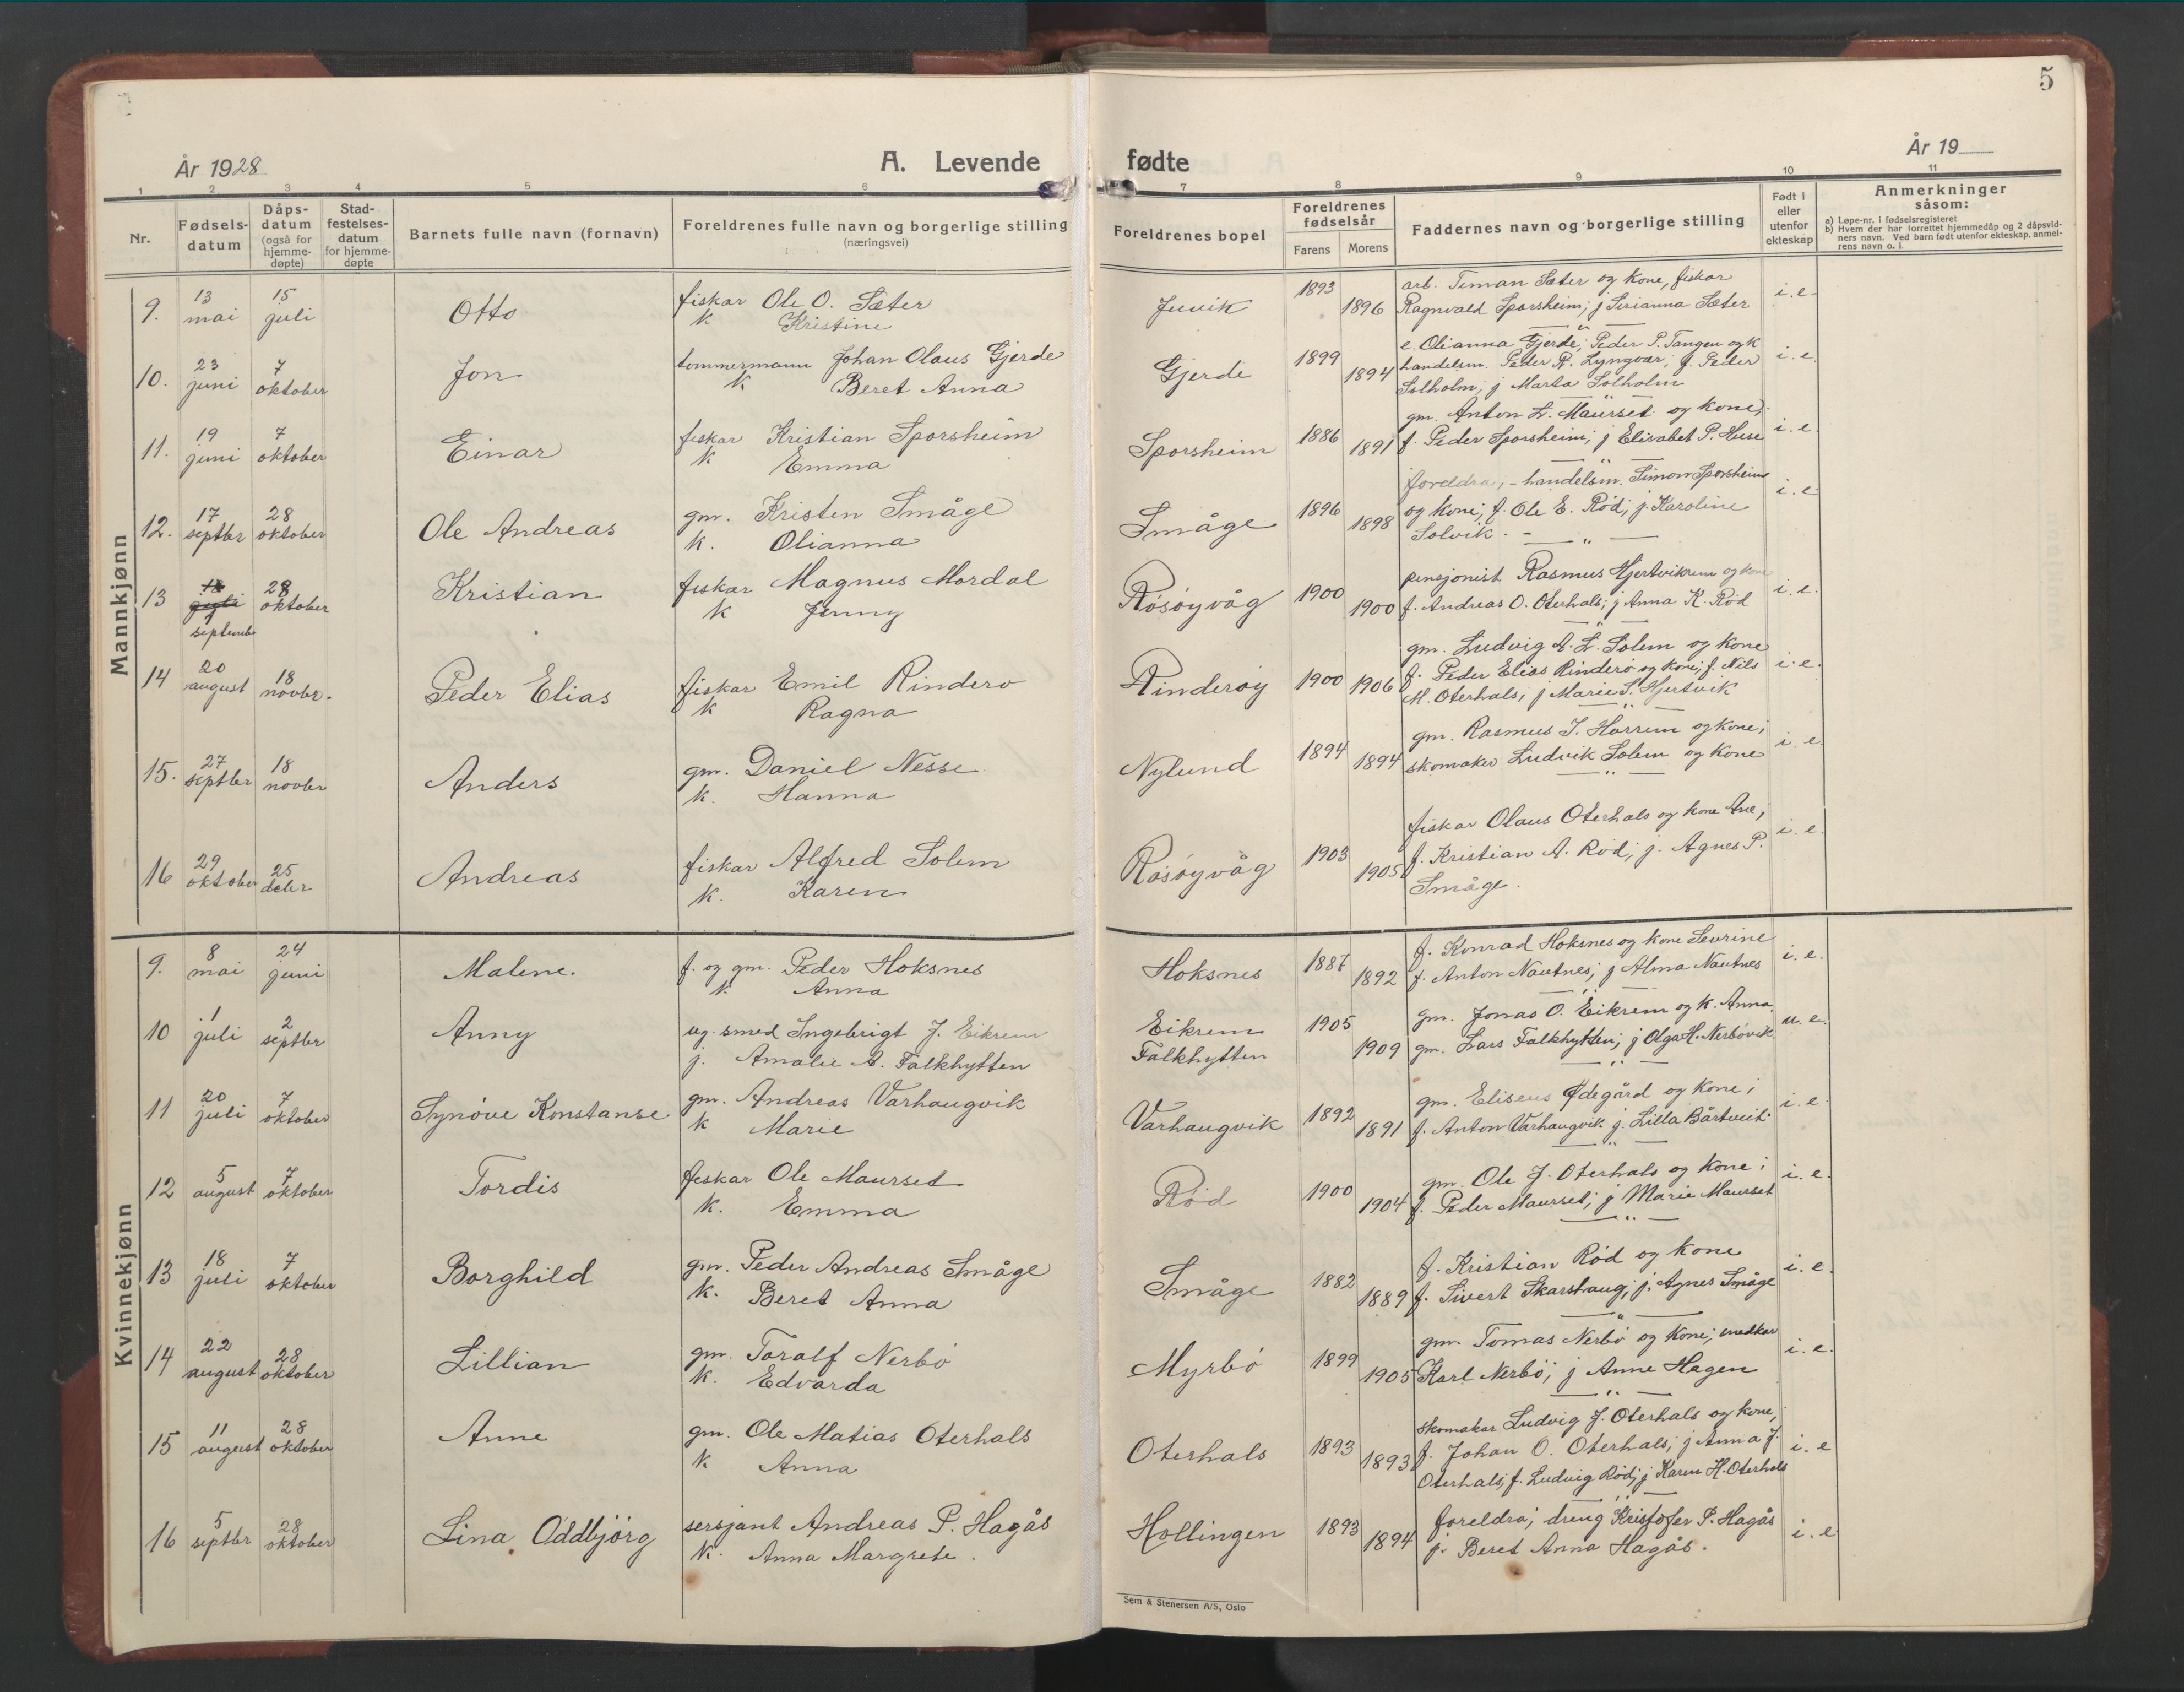 5
År 1928
A. Levende
fødte
År 19
1 2 3 4 5 6 7 8 9 10 11
Nr.
Fødsels-
datum
Dåps-
datum
(også for
hjemme-
døpte)
Stad-
festelses-
datum
for hjemme-
døpte
Barnets fulle navn (fornavn)
Foreldrenes fulle navn og borgerlige stilling
(næringsvei)
Foreldrenes bopel
Foreldrenes
fødselsår
Farens Morens
Faddernes navn og borgerlige stilling
Født i
eller
utenfor
ekteskap
Anmerkninger
såsom:
a) Løpe-nr. i fødselsregisteret
b) Hvem der har forrettet hjemmedåp og 2 dåpsvid-
ners navn. Ved barn født utenfor ekteskap, anmel-
rens navn o. l.
Mannkjønn
9. 13 mai 15 juli Otto fiskar Ole O. Sæter
k Kristine
Juvik 1893 1896
arb. Timan Sæter og kone, fiskar
Ragnvald Sporsheim; j Serianna Sæter
i. e.
10. 23 juni 7 oktober Jon tommermann Johan Olaus Gjerde
k Beret Anna
Gjerde 1899 1894
e. Olianna Gjerde; Peder P. Tangen og k
handelsm. Peder R. Lyngvær; f. Peder
Solholm; j Marta Solholm
i. e.
11. 19 juni 7 oktober Einar fiskar Kristian Sporsheim
k Emma
Sporsheim 1886 1891
gm. Anton L. Maurset og kone;
f. Peder Sporsheim; j Elisabet P. Huse
i. e.
12. 17 septbr 28 oktober Ole Andreas gm. Kristen Småge
k. Olianna
Småge 1896 1898
foreldra; - handelsm. Simon Sporsheim
og kone; f. Ole E. Rød; j. Karoline
Solvik.
i. e.
13 septembr 28 oktober Kristian fiskar Magnus Mordal
k Jenny
Røsøyvåg 1900 1900
pensjonist Rasmus Hjertvikrem og kone
f. Andreas O. Oterhals; j Anna K. Rød
i. e.
14 20 august 18 novbr. Peder Elias fiskar Emil Rinderø
k Ragna
Rinderøy 1900 1906
gm. Ludvig A. L. Solem og kone
f. Peder Elias Rinderø og kone; f. Nils
M. Oterhals; j Marie S. Hjertvik
i. e.
15. 27 septbr 18 novbr Anders gm. Daniel Nesse
k. Hanna
Nylund 1894 1894
gm. Rasmus J. Harrem og kone;
skomaker Ludvik Solem og kone
i. e.
16 29 oktober 25 debr Andreas fiskar Alfred Solem
k. Karen
Røsøyvåg 1903 1905
fiskar Olaus Oterhals og kone Ane;
f. Kristian A. Rød; j. Agnes P.
Småge.
i. e.
Kvinnekjønn
9. 8 mai 24 juni Malene. f. og gm. Peder Hoksnes
k. Anna
Hoksnes 1887 1892
f. Konrad Hoksnes og kone Sevrine
f. Anton Nautnes; j Alma Nautnes
i. e.
10 1 juli 2 septbr Anny ug. smed Ingebrigt J. Eikrem
j. Amalie A. Falkhytten
Eikrem
Falkhytten
1905 1909
gm. Jonas O. Eikrem og k. Anna,
gm. Lars Falkhytten; j Olga H. Nerbøvik
u. e.
11 20 juli 7 oktober Synøve Konstanse gm. Andreas Varhaugvik
k Marie
Varhaugvik 1892 1891
gm. Eliseus Ødegård og kone;
f. Anton Varhaugvik j. Lilla Bårtveit.
i. e.
12 5 august 7 oktober Tordis fiskar Ole Maurset
k. Emma
Rød 1900 1904
gm. Ole J. Oterhals og kone;
f. Peder Maurset; j Marie Maurset
i. e.
13 18 juli 7 oktober Borghild gm. Peder Andreas Småge
k. Beret Anna
Småge 1882 1889
f. Kristian Rød og kone
f. Sivert Skarshaug; j. Agnes Småge
i. e.
14 22 august 28 oktober Lillian gm. Toralf Nerbø
k. Edvarda
Myrbø 1899 1905
gm. Tomas Nerbø og kone; snedkar
Karl Nerbø; j Anne Hagen
i. e.
15 11 august 28 oktober Anne gm. Ole Matias Oterhals
k Anna
Oterhals 1893 1893
skomakar Ludvig J. Oterhals og kone,
f. Johan O. Oterhals; j Anna J.
Oterhals, f. Ludvig Rød; j Karen H. Oterhals
i. e
16 5 septbr 28 oktober Lina Oddbjörg sersjant Andreas P. Hagås
k. Anna Margrete.
Hollingen 1893 1894
foreldra; dreng Kristofer P. Hagås
j. Beret Anna Hagås.
i. e
Sem & Stenersen A/S, Oslo